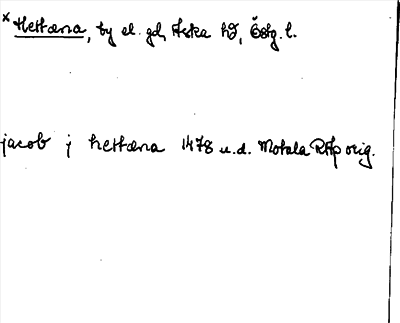 * Hettæna, by el. gd, Aska hd, Östg. l.
jacob j hettæna 1478 u.d. Motala RAp orig.